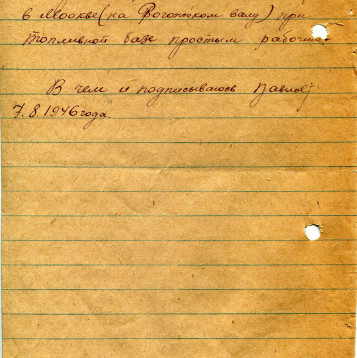 в Москве (на Рогожском валу) при
топливной базе простым рабочим.
В чем и подписываюсь Павлов
7.8.1946 года.